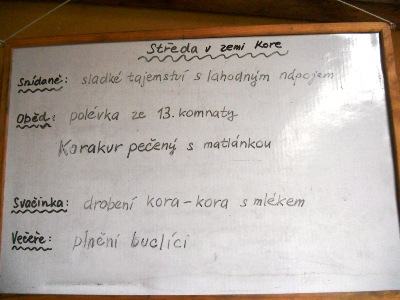 Středa v zemi Kore
Snídaně: sladké tajemství s lahodným nápojem
Oběd: polévka ze 13. komnaty
Korakur pečený s matlánkou
Svačinka: drobení kora-kora s mlékem
Večeře: plnění buclíci